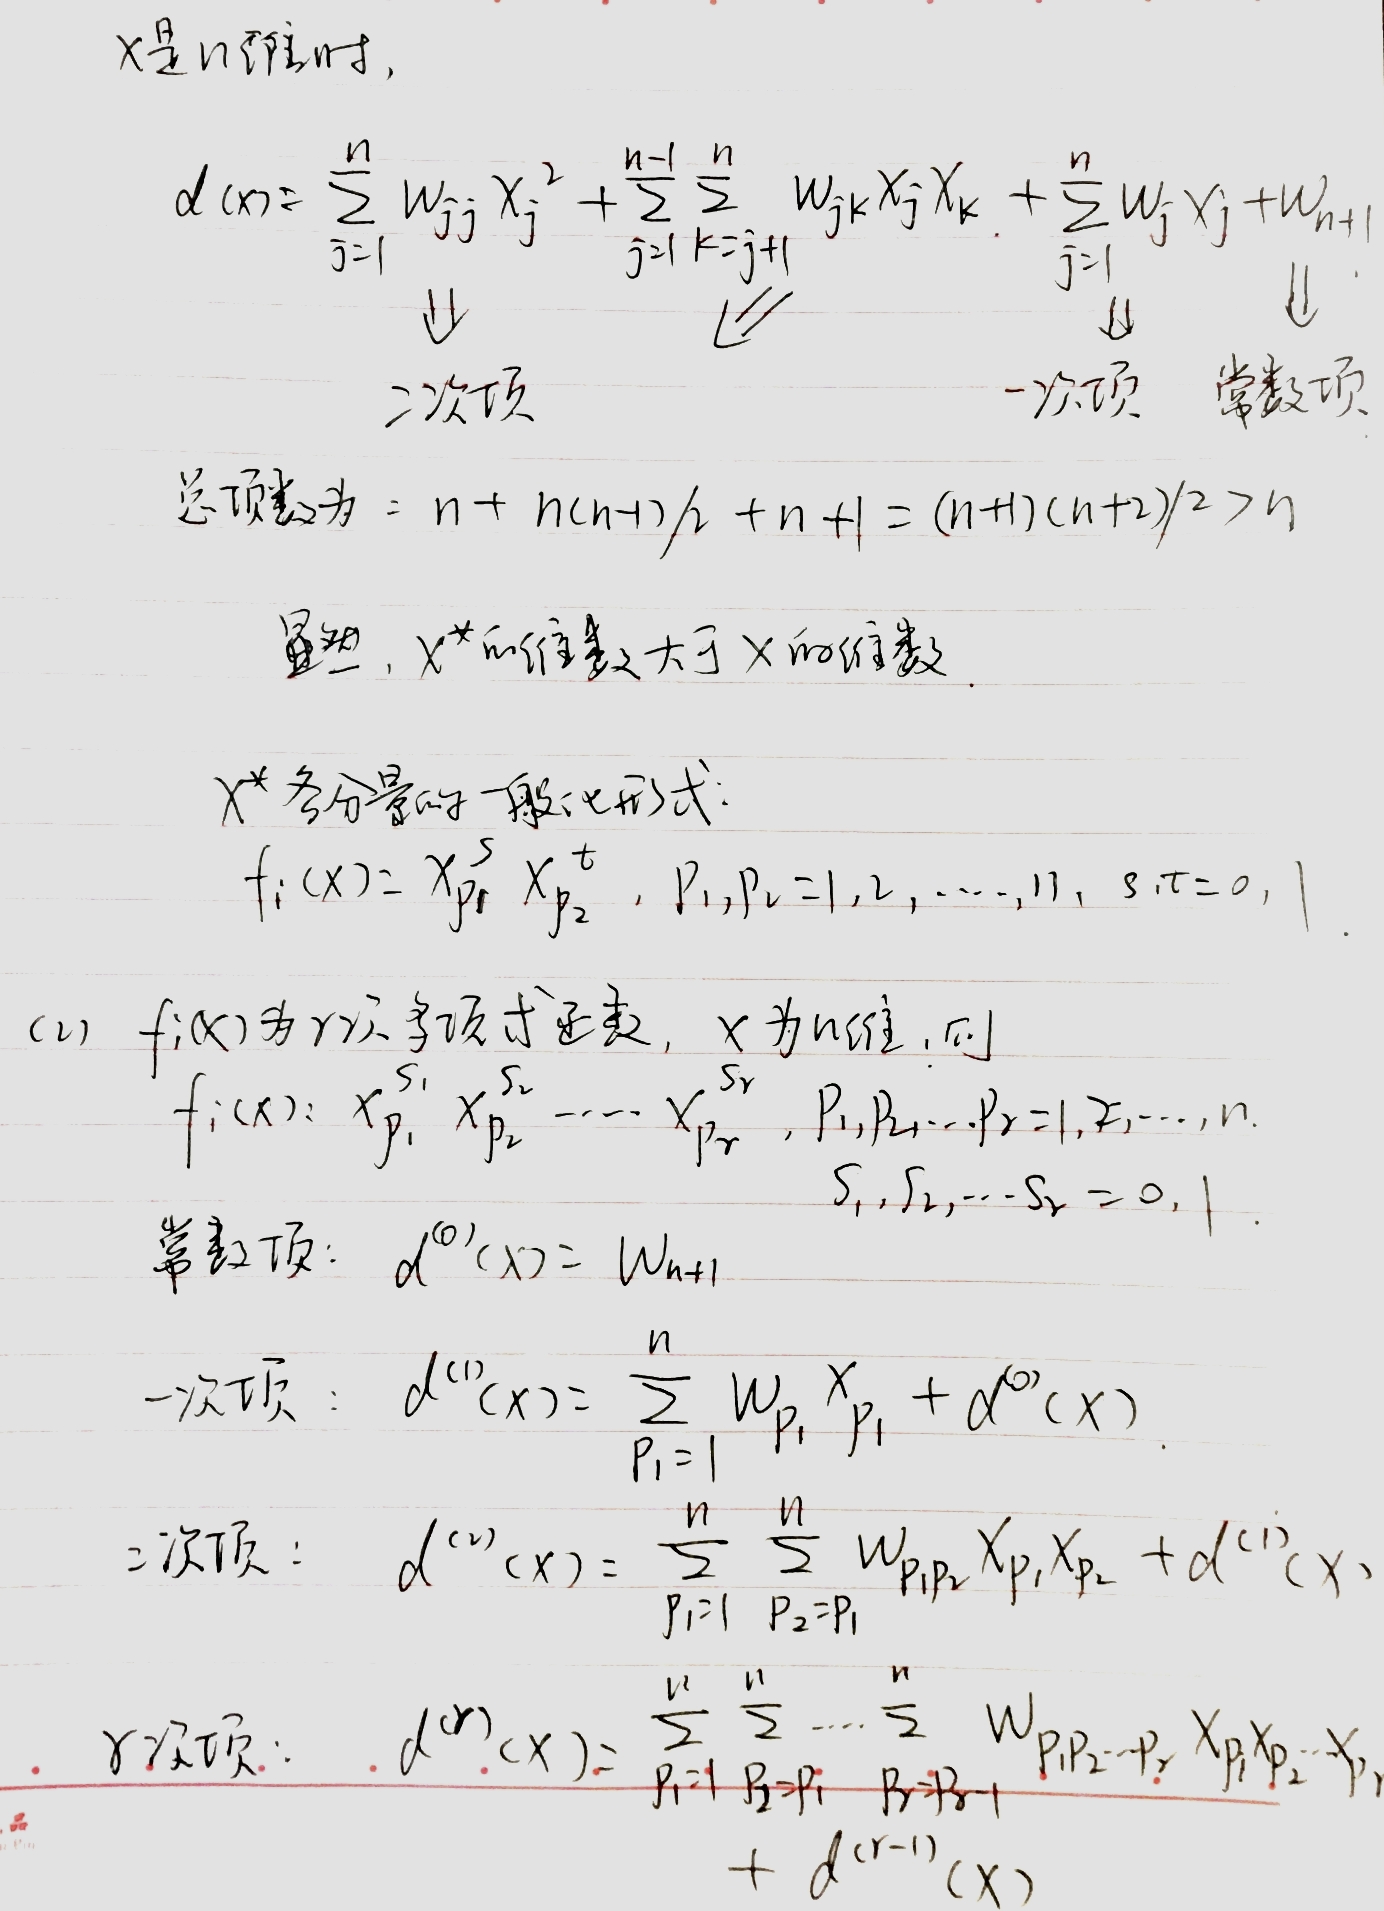 X是n维时,
d(x)= \sum_{j=1}^{n} W_{jj} X_j^2 + \sum_{j=1}^{n-1} \sum_{k=j+1}^{n} W_{jk} X_j X_k + \sum_{j=1}^{n} W_j X_j + W_{n+1}
⇓ ⇙ ⇓ ⇓
二次项 一次项 常数项
总项数为: n + n(n-1)/2 + n + 1 = (n+1)(n+2)/2 > n
显然, X*的维数大于X的维数.
X*各分量的一般化形式:
f_i(X)= X_{p_1}^s X_{p_2}^t, p_1,p_2=1,2,……,n, s,t=0,1.
(2) f_i(X)为r次多项式函数, X为n维,则
f_i(X): X_{p_1}^{s_1} X_{p_2}^{s_2} …… X_{p_r}^{s_r}, p_1,p_2,…p_r=1,2,…,n.
s_1,s_2,…s_r=0,1.
常数项: d^{(0)}(X)= W_{n+1}
一次项: d^{(1)}(X)= \sum_{p_1=1}^{n} W_{p_1} X_{p_1} + d^{(0)}(X).
二次项: d^{(2)}(X)= \sum_{p_1=1}^{n} \sum_{p_2=p_1}^{n} W_{p_1p_2} X_{p_1} X_{p_2} + d^{(1)}(X)
r次项: d^{(r)}(X)= \sum_{p_1=1}^{n} \sum_{p_2=p_1}^{n} …… \sum_{p_r=p_{r-1}}^{n} W_{p_1p_2…p_r} X_{p_1} X_{p_2}…X_{p_r}
品
+ d^{(r-1)}(X)